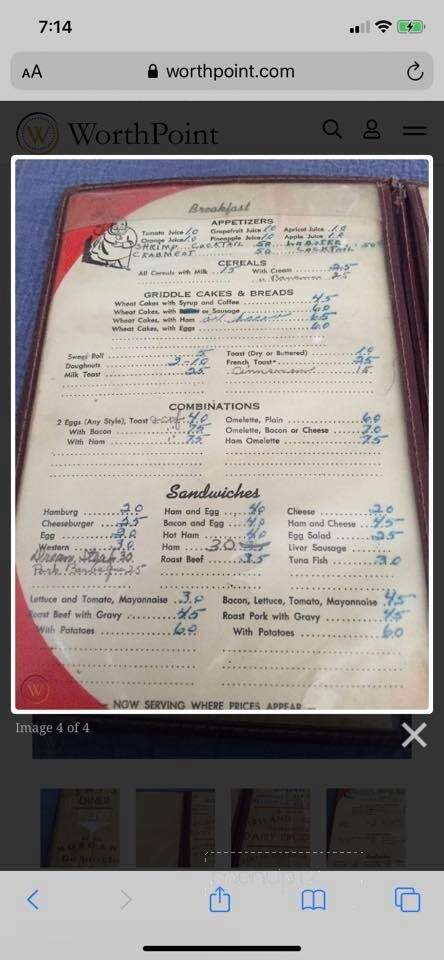 7:14
AA worthpoint.com
W WorthPoint
Breakfast
APPETIZERS
Tomato Juice 10 Grapefruit Juice 10 Apricot Juice 10
Orange Juice 10 Pineapple Juice 10 Apple Juice 10
SHRIMP COCKTAIL 50 LOBSTER COCKTAIL 50
CRABMEAT 50
CEREALS
All Cereals with Milk 15 With Cream 25
" Banana 25
GRIDDLE CAKES & BREADS
Wheat Cakes with Syrup and Coffee 45
Wheat Cakes, with or Sausage 60
Wheat Cakes, with Ham or bacon 65
Wheat Cakes, with Eggs 60
Sweet Roll 5 Toast (Dry or Buttered) 10
Doughnuts 2-10 French Toast 25
Milk Toast 25 Cinnamon 15
COMBINATIONS
2 Eggs (Any Style), Toast 40 Omelette, Plain 60
With Bacon 75 Omelette, Bacon or Cheese 70
With Ham 75 Ham Omelette 75
Sandwiches
Hamburg 20 Ham and Egg 40 Cheese 20
Cheeseburger 25 Bacon and Egg 40 Ham and Cheese 45
Egg 20 Hot Ham 40 Egg Salad 25
Western 30 Ham 30 Liver Sausage
Steak 30 Roast Beef 35 Tuna Fish 30
Pork 25
Lettuce and Tomato, Mayonnaise 30 Bacon, Lettuce, Tomato, Mayonnaise 45
Roast Beef with Gravy 45 Roast Pork with Gravy 45
With Potatoes 60 With Potatoes 60
NOW SERVING WHERE PRICES APPEAR
W
Image 4 of 4
DINER